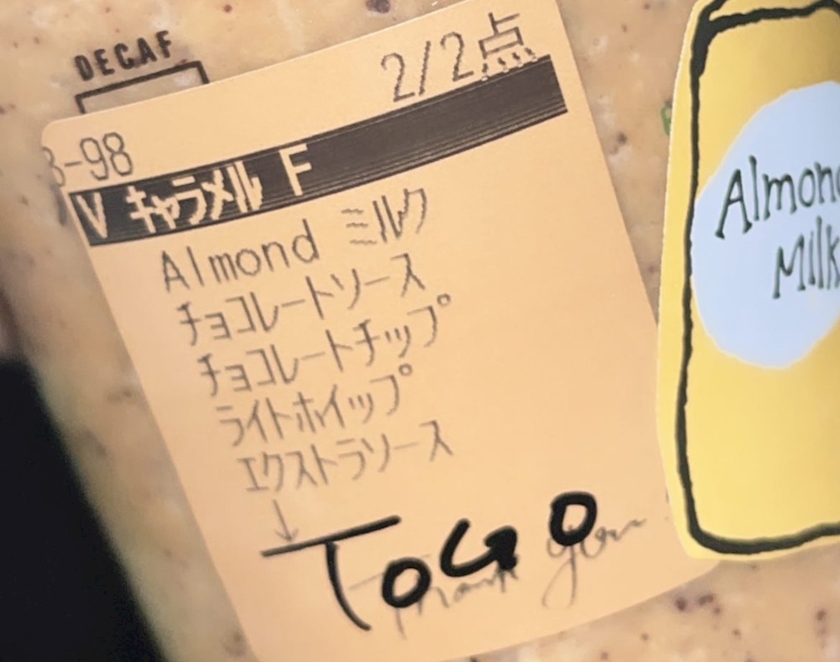 DECAF
2/2点
3-98
V キャラメル F
Almond ミルク
チョコレートソース
チョコレートチップ
ライトホイップ
エクストラソース
↓
TOGO
Thank you
Almond
Milk